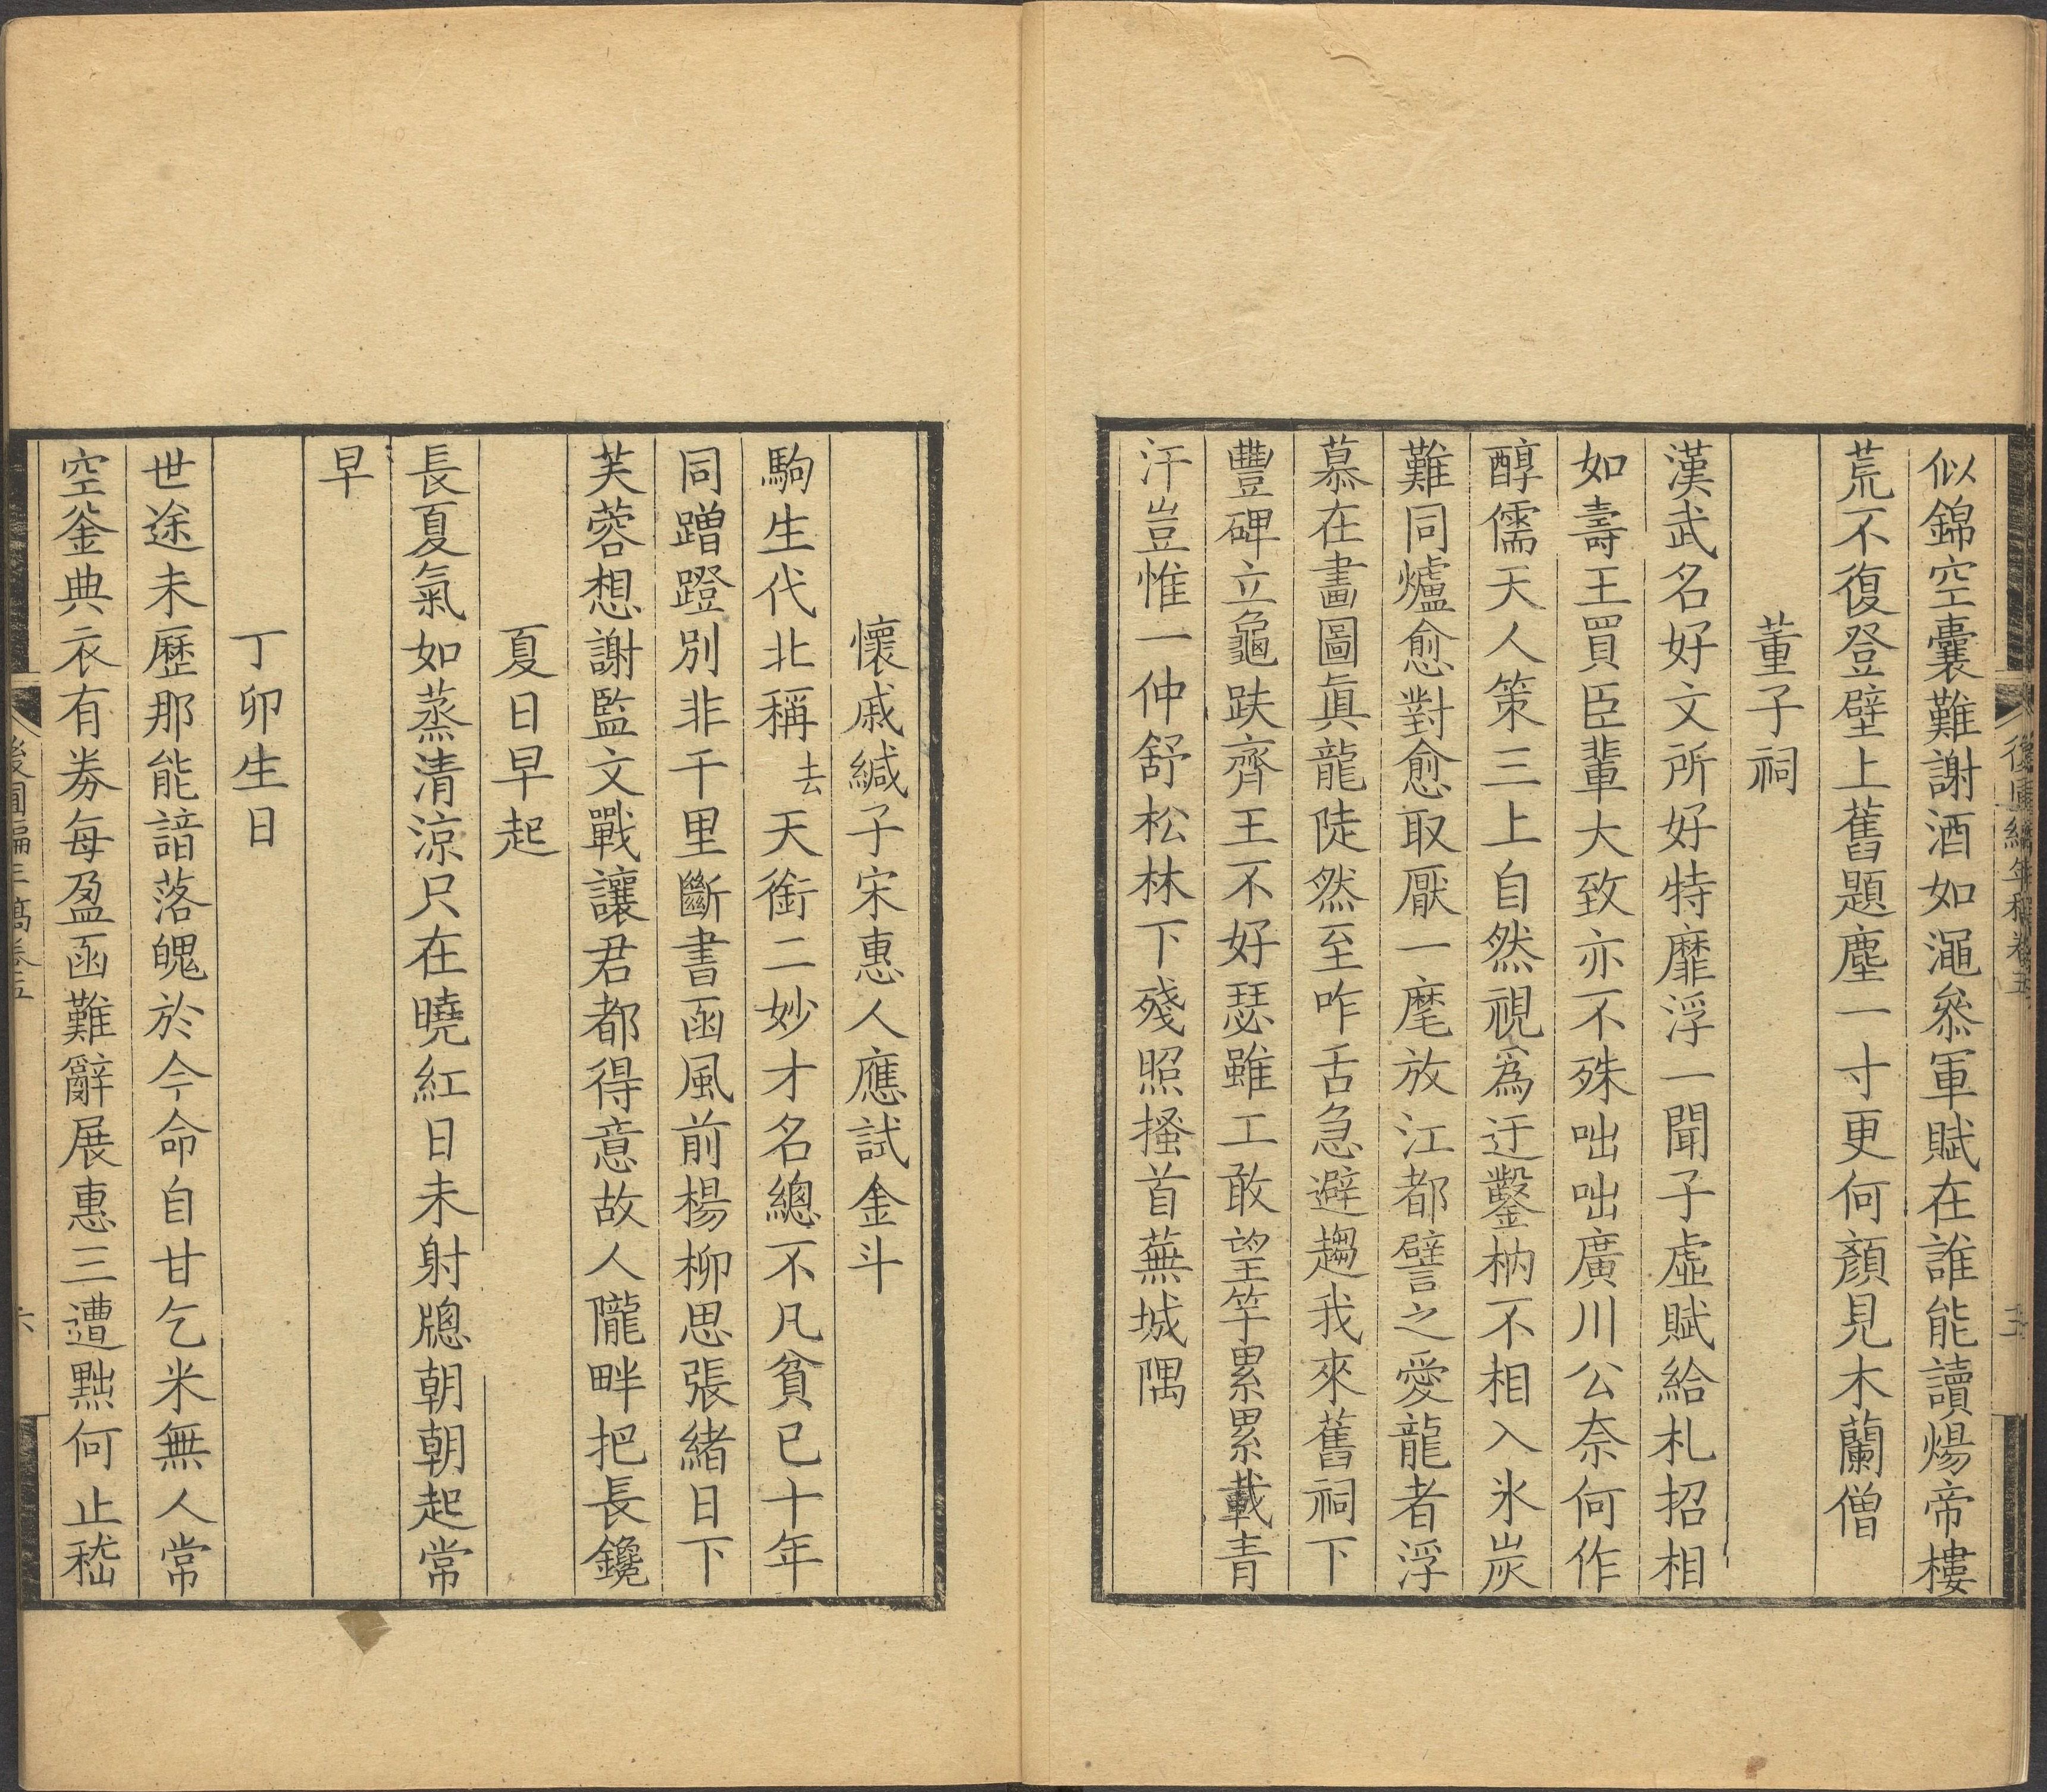 似錦空囊難謝酒如澠叅軍賦在誰能讀煬帝樓
荒不復登壁上舊題塵一寸更何顏見木蘭僧
董子祠
漢武名好文所好特靡浮一聞子虛賦給札招相
如壽王買臣輩大致亦不殊咄咄廣川公奈何作
醇儒天人策三上自然視爲迂鑿枘不相入氷炭
難同爐愈對愈取厭一麾放江都譬之愛龍者浮
慕在畫圖眞龍陡然至咋舌急避趨我來舊祠下
豐碑立龜趺齊王不好瑟雖工敢望竽累累載青
汗豈惟一仲舒松林下殘照搔首蕪城隅
懷戚緘子宋惠人應試金斗
駒生代北稱去天銜二妙才名總不凡貧已十年
同蹭蹬別非千里斷書函風前楊柳思張緒日下
芙蓉想謝監文戰讓君都得意故人隴畔把長鑱
夏日早起
長夏氣如蒸清涼只在曉紅日未射牕朝朝起常
早
丁卯生日
世途未歷那能諳落魄於今命自甘乞米無人常
空釜典衣有券每盈函難辭展惠三遭黜何止嵇